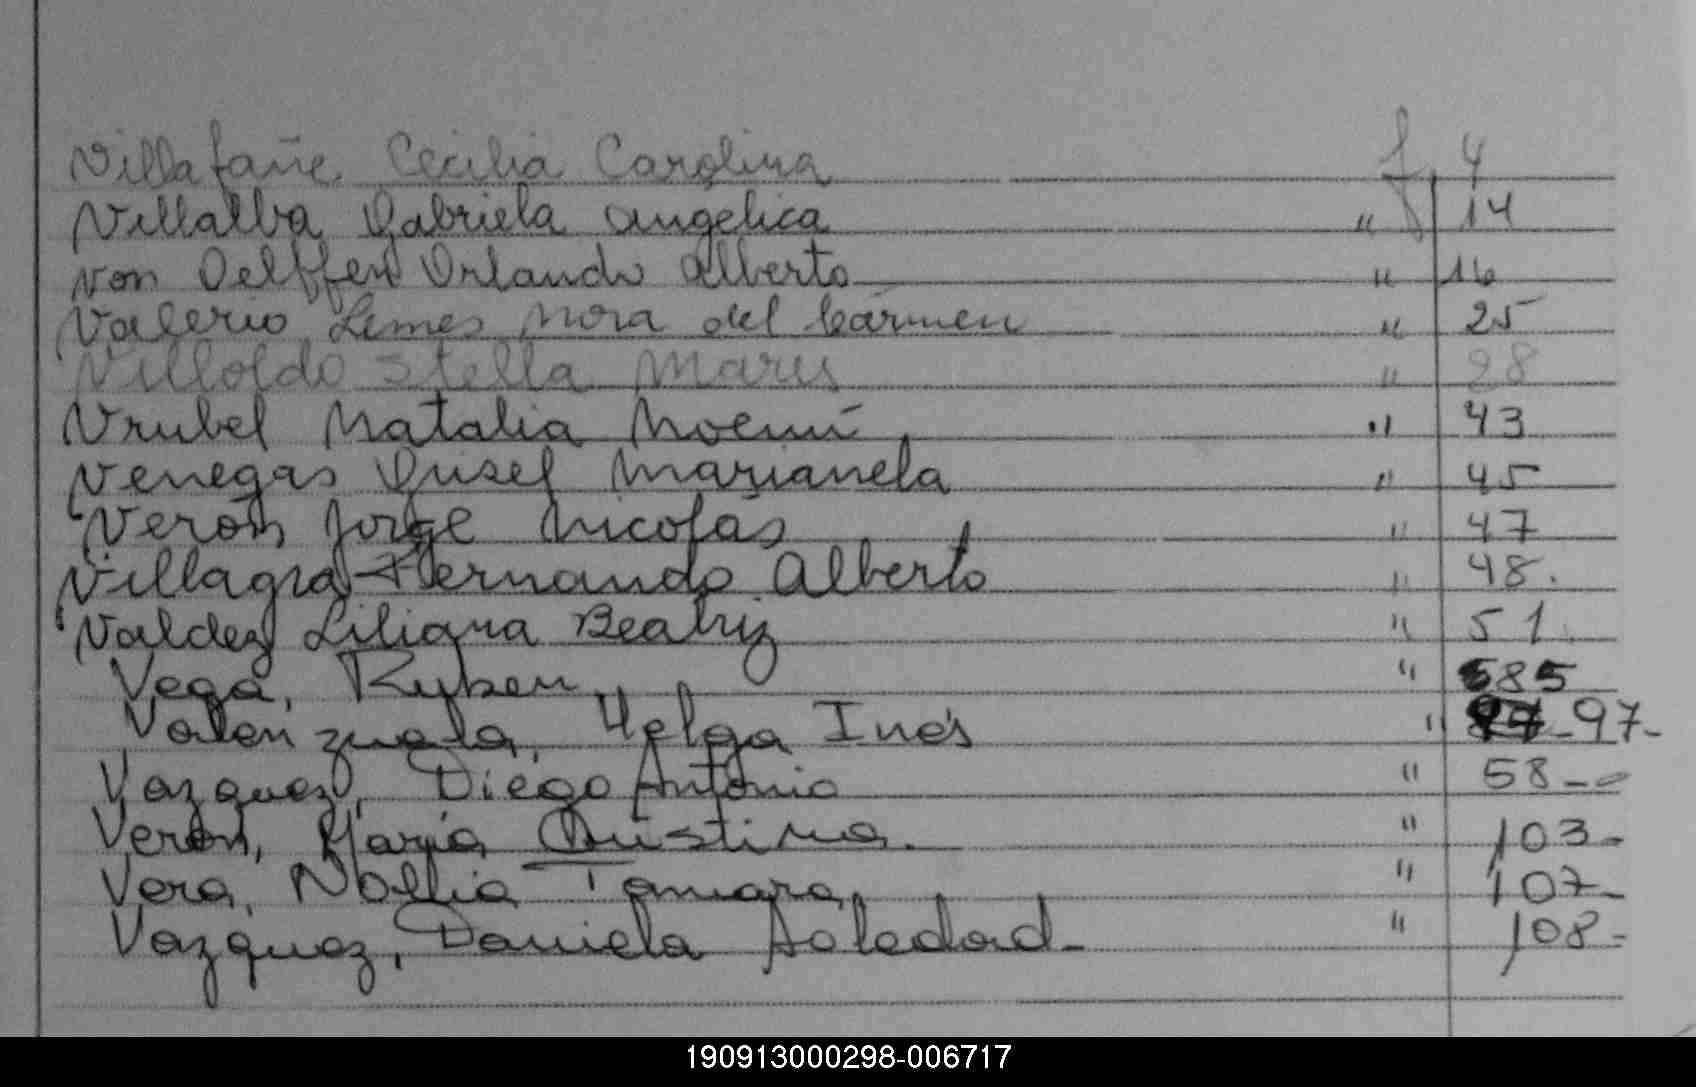 Villafañe Cecilia Carolina f 4
Villalba Gabriela Angelica " 14
Von Oelffen Orlando Alberto " 16
Valerio Lemes Nora del Cármen " 25
Villoldo Stella Maris " 28
Vrubel Natalia Noemí " 43
Venegas Marianela " 45
Verón Jorge Nicolas " 47
Villagra Hernando Alberto " 48.
Valdez Liliana Beatriz " 51
Vega, Ruben " 85
Valenzuela, Helga Inés " 97-
Vazquez, Diego Antonio " 58--
Verón, María Cristina. " 103-
Vera, Noelia Tamara " 107-
Vazquez, Daniela Soledad- " 108-
190913000298-006717